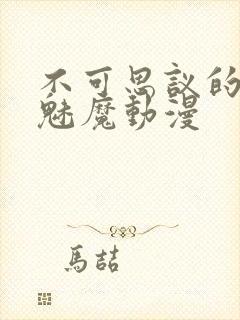 不可思議的
魅魔動漫
馬喆